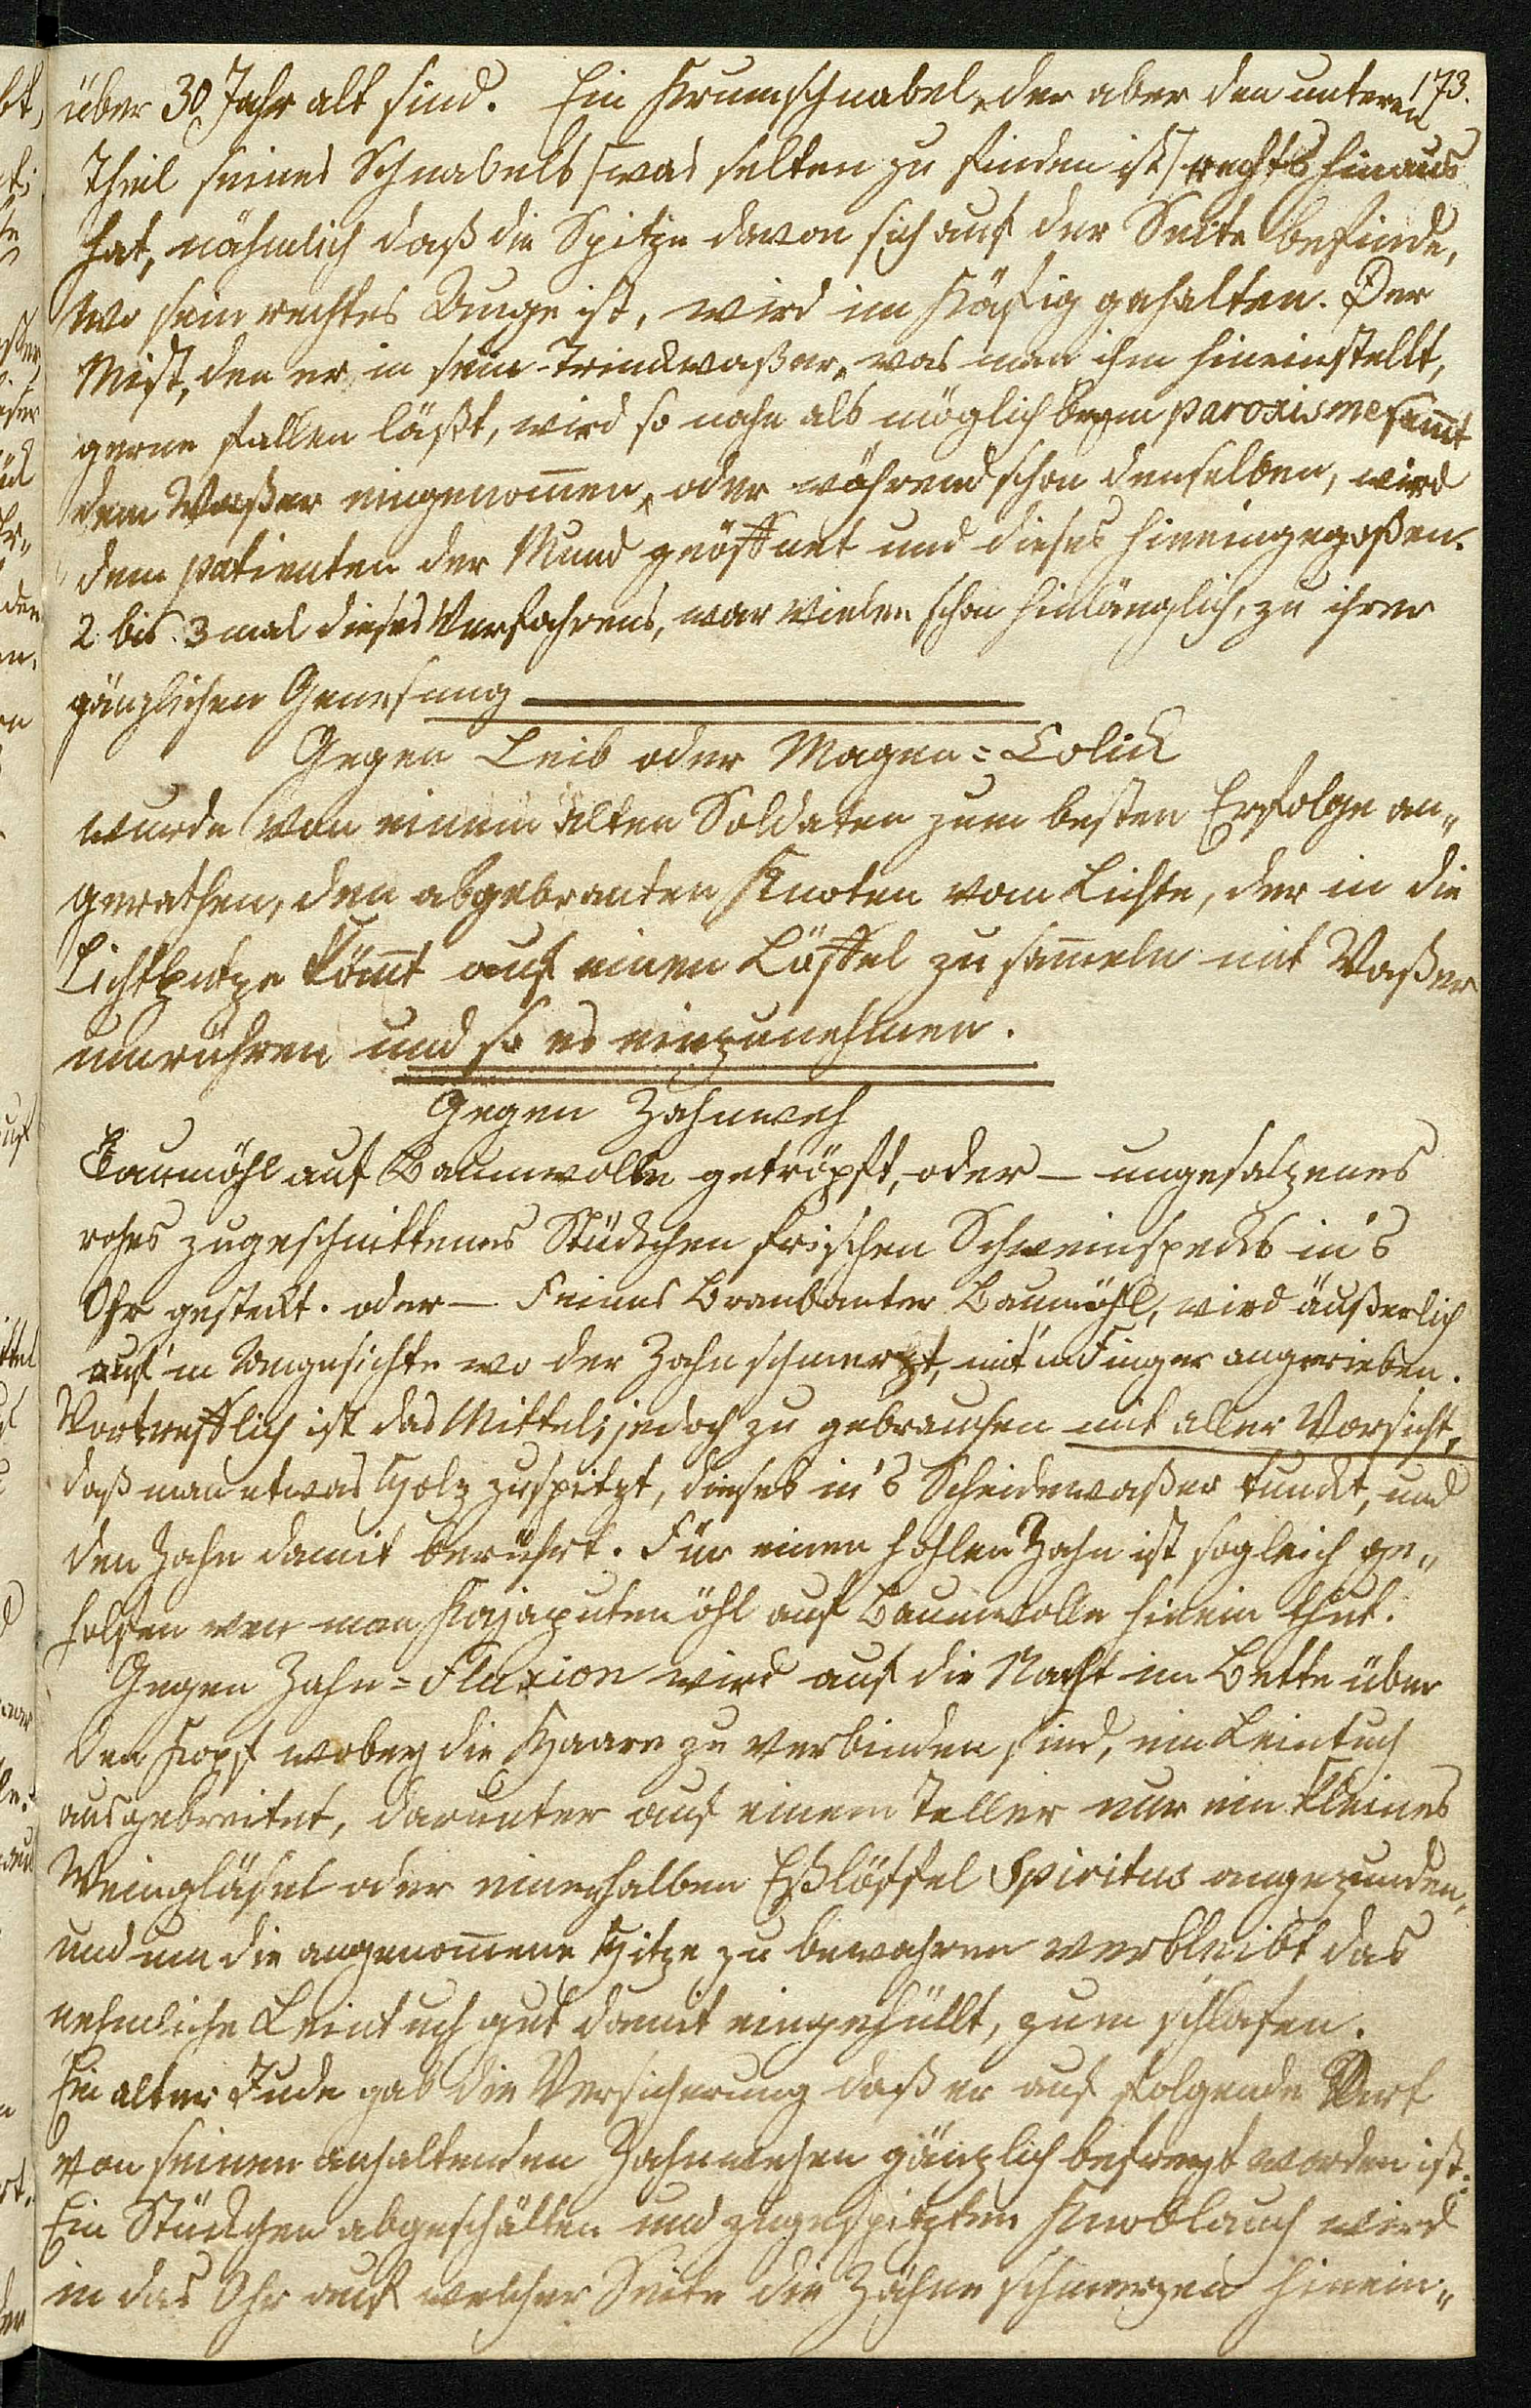 173.
über 30 Jahr alt sind. Ein Krumschnabel, der aber den unteren
Theil seines Schnabels /was selten zu finden ist/ rechts hinaus
hat, nähmlich daß die Spitze davon sich auf der Seite befinde,
wo sein rechtes Auge ist, wird im Käfig gehalten. Der
Mist, den er in sein Trinkwaßer, was man ihm hineinstellt,
gerne fallen läßt, wird so nahe als möglich beym paroxisme samt
dem Waßer eingenomen, oder während schon denselben, wird
dem patienten der Mund geöffnet und dieses hineingegoßen.
2 bis 3 mal dieses Verfahrens, war vielen schon hinlänglich, zu ihrer
gänzlichen Genesung
Gegen Leib oder Magen=Colick
wurde von einem alten Soldaten zum besten Erfolge an„
gerathen, den abgebranten Knoten vom Lichte, der in die
Lichtputze kömt auf einen Löffel zu sameln mit Waßer
umrühren und so es einzunehmen.
Gegen Zahnweh
Baumöhl auf Baumwolle getröpft, oder — ungesalzenes
rohes zugeschnittenes Stückchen frischen Schweinspecks in's
Ohr gesteckt. oder — Feines Brabanter Baumöhl, wird äußerlich
auf'm Angesichte wo der Zahn schmerzt, mit'm Finger angerieben.
Vortrefflich ist das Mittel; jedoch zu gebrauchen mit aller Vorsicht,
daß man etwas Holz zuspitzt, dieses in's Scheidewaßer tunckt, und
den Zahn damit berührt. Für einen hohlen Zahn ist sogleich ge„
holfen wen man Kajaputenöhl auf Baumwolle hinein thut.
Gegen Zahn=Fluxion wird auf die Nacht im Bette über
den Kopf wobey die Haare zu verbinden sind, ein Leintuch
ausgebreitet, darunter auf einem Teller nur ein kleines
Weingläsel oder einenhalben Eßlöffel Spiritus angezunden,
und um die angenomene Hitze zu bewahren verbleibt das
nehmliche Leintuch gut damit eingehüllt, zum schlafen.
Ein alter Jude gab die Versicherung daß er auf folgende Art
von seinen anhaltenden Zahnwehen gänzlich befreyt worden ist.
Ein Stückchen abgeschälten und zugespitzten Knoblauch wird
in das Ohr auf welcher Seite die Zähne schmerzen hinein„